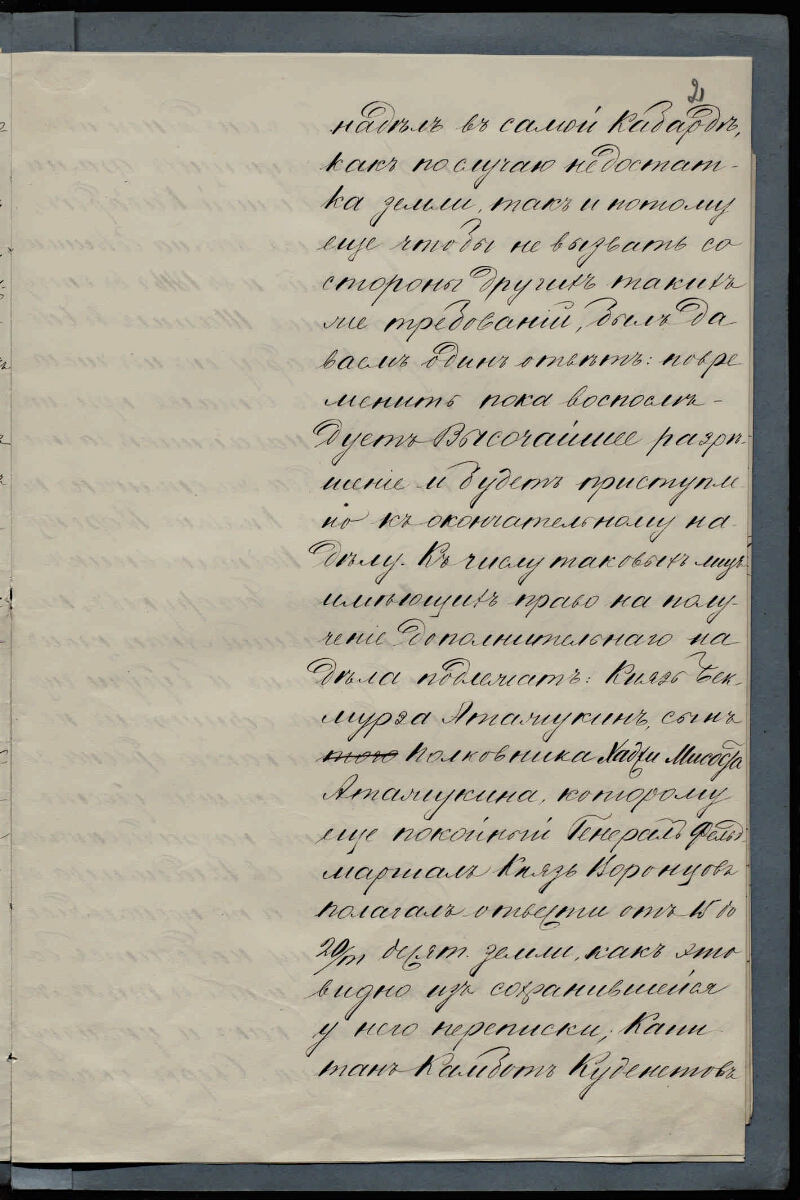 2
надѣлъ въ самой Кабардѣ,
какъ послучаю недостат-
ка земли, такъ и потому
еще чтобы не вызвать со
стороны другихъ такихъ
же требованій, былъ да
ваемъ одинъ отвѣтъ: повре
менить пока воспослѣ-
дуетъ Высочайшее разрѣ-
шеніе и будетъ приступле
но къ окончательному на-
дѣлу. Къ числу таковыхъ лицъ
имѣющихъ право на полу-
ченіе дополнительнаго на
дѣла подлежатъ: Князь Бек-
мурза Атажукинъ, сынъ
того Полковника Хаджи Мисоста
Атажукина, которому
еще покойный Генералъ Фельд-
маршалъ Князь Воронцовъ
полагалъ отвести отъ 15 до
20/т десят. земли, какъ это
видно изъ сохранившейся
у него переписки; Капи
танъ Камботъ Куденетовъ